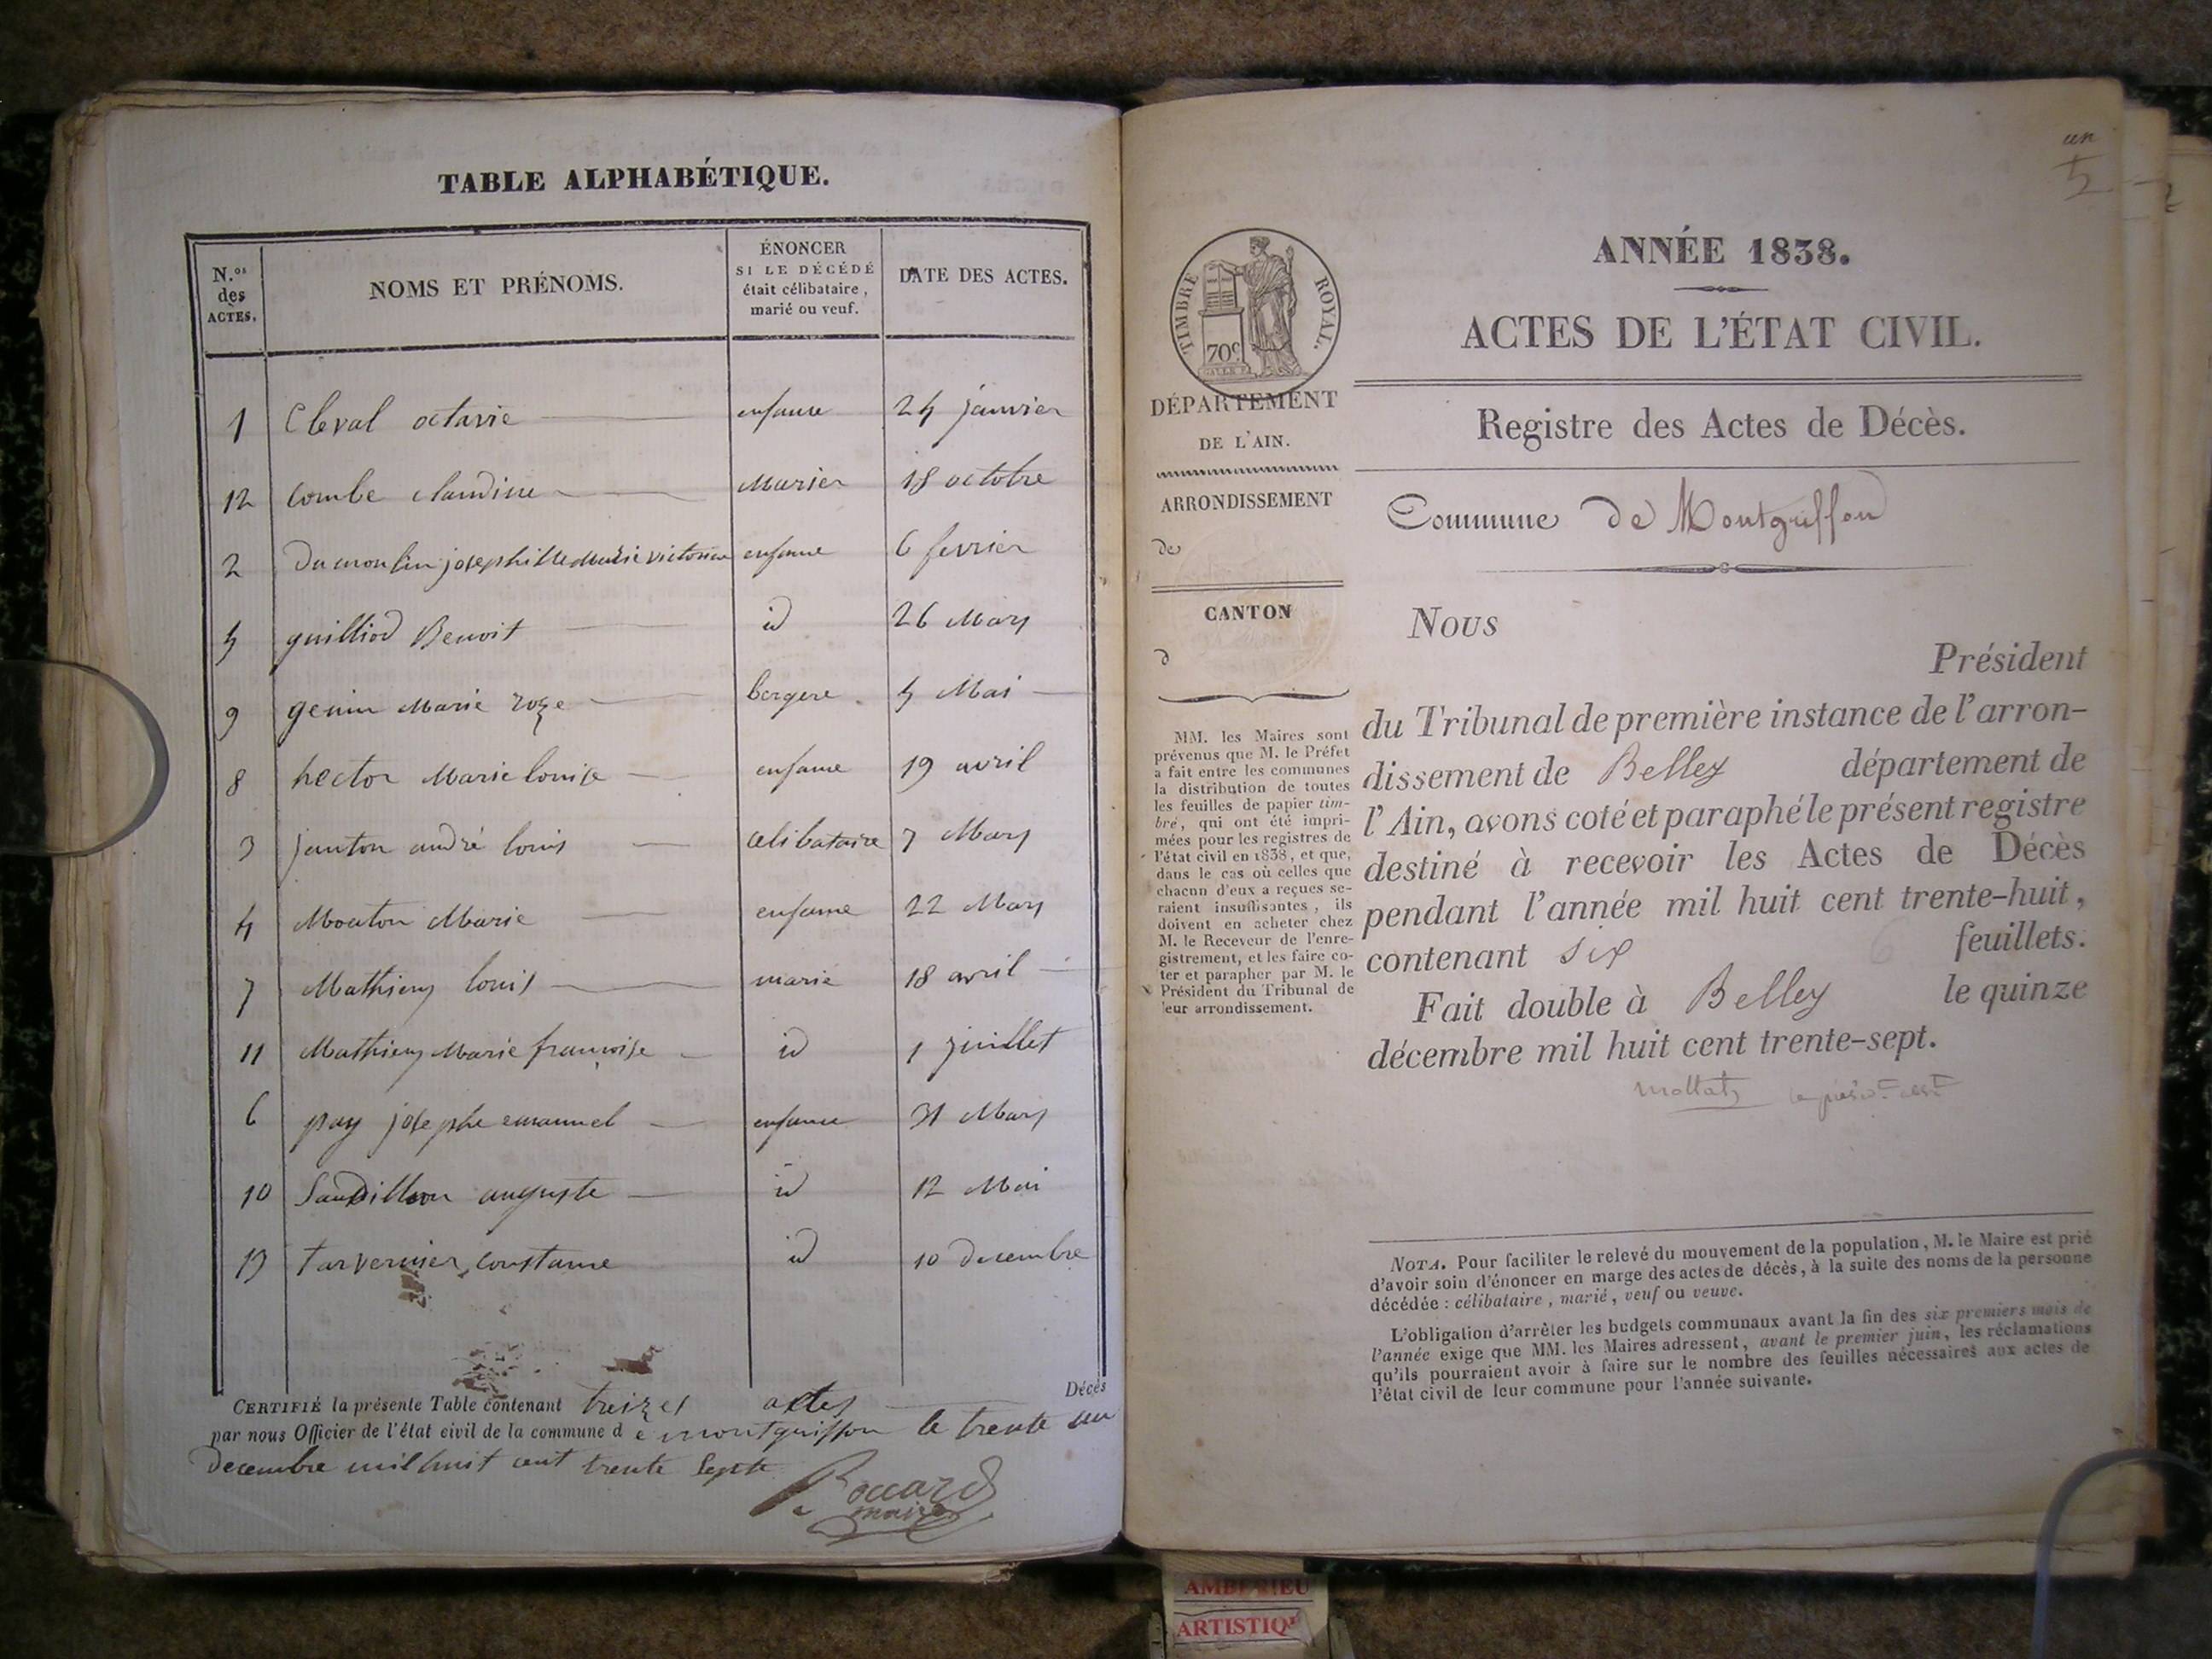 TABLE ALPHABÉTIQUE.
N.os des ACTES.
NOMS ET PRÉNOMS.
ÉNONCER SI LE DÉCÉDÉ était célibataire, marié ou veuf.
DATE DES ACTES.
1 Cleval octavie enfance 24 janvier
12 Combe claudine Marier 18 octobre
2 Dumoulin josephille Marie victorine enfance 6 fevrier
5 guilliod Benoit id 26 Mars
9 genin Marie roze bergere 5 Mai
8 hector Marie louise enfance 19 avril
3 janton andré louis celibataire 7 Mars
4 Mouton Marie enfance 22 Mars
7 Mathieu louis marié 18 avril
11 Mathieu Marie françoise id 1 juillet
6 pay josephe emanuel enfance 31 Mars
10 Sandillon auguste id 12 Mai
13 tarvernier constance id 10 decembre
CERTIFIÉ la présente Table contenant treizes actes Décès
par nous Officier de l'état civil de la commune d e montgriffon le trente un
decembre mil huit cent trente septe
Bocard
maire
un
ANNÉE 1838.
ACTES DE L'ÉTAT CIVIL.
Registre des Actes de Décès.
Commune de Montgriffon
TIMBRE ROYAL.
70c
DÉPARTEMENT
DE L'AIN.
ARRONDISSEMENT
de
CANTON
d
MM. les Maires sont
prévenus que M. le Préfet
a fait entre les communes
la distribution de toutes
les feuilles de papier tim-
bré, qui ont été impri-
mées pour les registres de
l'état civil en 1838, et que,
dans le cas où celles que
chacun d'eux a reçues se-
raient insuffisantes, ils
doivent en acheter chez
M. le Receveur de l'enre-
gistrement, et les faire co-
ter et parapher par M. le
Président du Tribunal de
leur arrondissement.
Nous
Président
du Tribunal de première instance de l'arron-
dissement de Belley département de
l'Ain, avons coté et paraphé le présent registre
destiné à recevoir les Actes de Décès
pendant l'année mil huit cent trente-huit,
contenant six 6 feuillets.
Fait double à Belley le quinze
décembre mil huit cent trente-sept.
NOTA. Pour faciliter le relevé du mouvement de la population, M. le Maire est prié
d'avoir soin d'énoncer en marge des actes de décès, à la suite des noms de la personne
décédée : célibataire, marié, veuf ou veuve.
L'obligation d'arrêter les budgets communaux avant la fin des six premiers mois de
l'année exige que MM. les Maires adressent, avant le premier juin, les réclamations
qu'ils pourraient avoir à faire sur le nombre des feuilles nécessaires aux actes de
l'état civil de leur commune pour l'année suivante.
AMBERIEU
ARTISTIQU